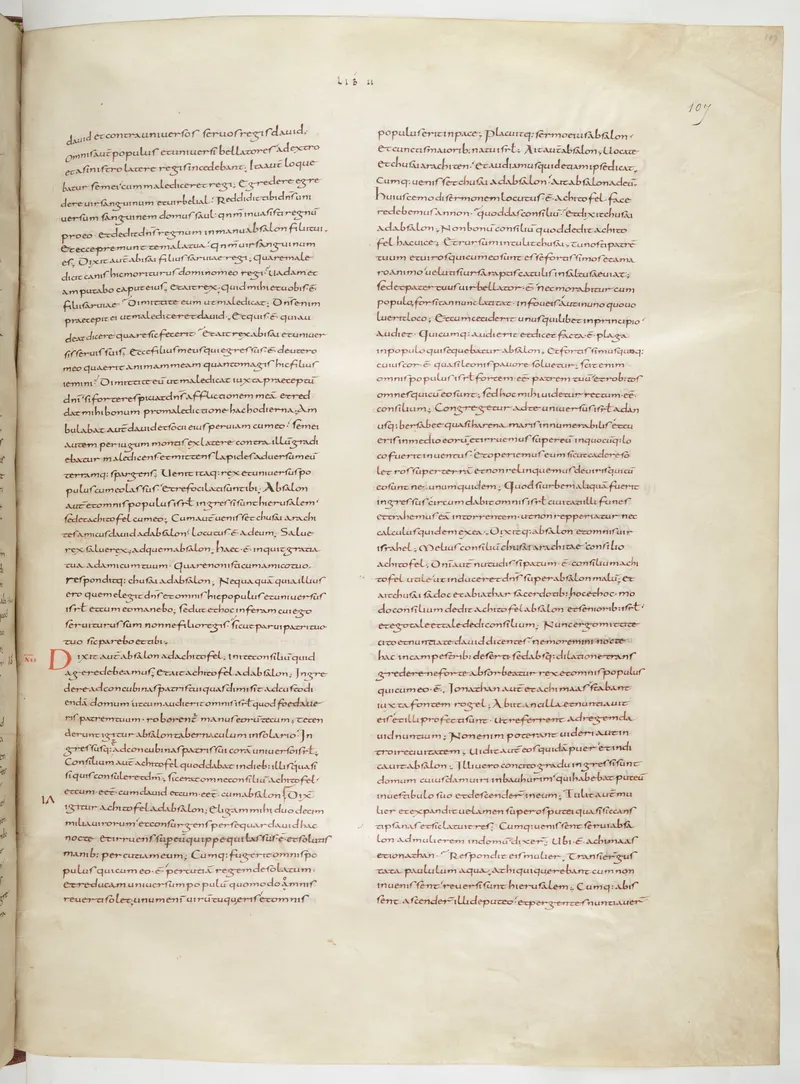 LIB II
109
dauid et contra uniuersos seruos regis dauid.
Omnis aut̄ populus et uniuersi bellatores adextro
et asinistro latere regis incedebant; Ita aut̄ loque
batur semei cum malediceret regi; Egredere egre
dere uir sanguinum et uir belial. Reddidit tibi dn̄s uni
uersum sanguinem domus saul. qnm̄ inuasisti regnū
pro eo. et dedit dn̄s regnum in manu absalon filii tui.
Et ecce premunt te mala tua. qnm̄ uir sanguinum
es. Dixit aut̄ abisai filius saruiae regi; Quare male
dicit canis hic moriturus domino meo regi. Uadam et
amputabo caput eius. Et ait rex; Quid mihi et uobis ē
filii saruiae. Dimittite eum ut maledicat; Dn̄s enim
praecepit ei ut malediceret dauid. Et quis ē qui au
deat dicere quare sic fecerit. Et ait rex abisai et uniuer
sis seruis suis; Ecce filius meus qui egressus ē de utero
meo quaerit animam meam quanto magis hic filius
iemini. Dimittite eū ut maledicat iuxta praeceptū
dn̄i. si forte respiciat dn̄s afflictionem meā. et red
dat mihi bonum pro maledictione hac hodierna; Am
bulabat aut̄ dauid et socii eius per uiam cum eo. Semei
autem per iugum montis ex latere contra illū gradi
ebatur maledicens et mittens lapides aduersum eū
terramq; spargens. Uenit itaq; rex et uniuersus po
pulus cum eo lassus. et refocilati sunt ibi; Absalon
aut̄ et omnis populus isrt̄ ingressi sunt hierusalem.
sed et achitofel cum eo; Cum aut̄ uenisset chusai arachi
tes amicus dauid ad absalon. locutus ē ad eum; Salue
rex salue rex. ad quem absalon. Haec ē inquit gratia
tua ad amicum tuum. Quare non isti cum amico tuo.
Responditq; chusai ad absalon; Nequaquā quia illius
ero quem elegit dn̄s et omnis hic populus et uniuersus
isrt̄ et cum eo manebo; sed ut et hoc inferam cui ego
seruiturus sum nonne filio regis. Sicut parui patri tuo
tuo sic parebo et tibi.
XVI Dixit aut̄ absalon ad achitofel; Inite consiliū quid
agere debeamus. Et ait achitofel ad absalon; Ingre
dere ad concubinas patris tui quas dimisit ad custodi
endā domum. ut cum audierit omnis isrt̄ quod foedaue
ris patrem tuum. roborent̄ manus eorū tecum; Teten
derunt igitur absalon tabernaculum in solario. In
gressusq; ad concubinas patris sui corā uniuerso isrt̄.
Consilium aut̄ achitofel quod dabat in diebus illis quasi
si quis consuleret dm̄. sic erat omne consiliū achitofel.
et cum eēt cum dauid et cum eēt. cum absalon. Dixit
LA igitur achitofel ad absalon; Eligam mihi duodecim
milia uirorum et consurgens persequar dauid hac
nocte. et irruens sup eū quippe qui lassus ē et solutis
manib; percutiam eum; Cumq; fugerit omnis po
pulus qui cum eo ē. percutiā regem desolatum.
et reducam uniuersum populū quomodo omnis
reuerti solet. unum enī uirū tu queris et omnis
populus erit in pace; Placuitq; sermo eius absalon.
et cunctis maiorib; natu isrt̄. Ait aut̄ absalon; Uocate
et chusai arachiten. et audiamus quid etiam ipse dicat.
Cumq; uenisset chusai ad absalon. Ait absalon ad eū.
Huiuscemodi sermonem locutus ē achitofel. face
re debemus an non. quod das consiliū. Et dixit chusai
ad absalon; Non bonū consiliū quod dedit achito
fel hac uice; Et rursum intulit chusai; Tu nosti patrē
tuum et uiros qui cum eo sunt esse fortissimos et ama
ro animo ueluti si ursa raptis catulis in saltu saeuiat;
Sed et pater tuus uir bellator ē. nec morabitur cum
populo. forsitan nunc latitat in foueis aut in uno quo uo
luerit loco; Et cum ceciderit unusquilibet in principio.
Audiet quicumq; audierit et dicet facta ē plaga
in populo qui sequebatur absalon; Et fortissimus quisq;
cuius cor ē quasi leonis pauore soluetur; Scit enim
omnis populus isrt̄ fortem eē patrem tuū. et robustos
omnes qui cū eo sunt; sed hoc mihi uidetur rectum eē
consilium; Congregetur ad te uniuersus isrt̄ a dan
usq; bersabee quasi harena maris innumerabilis. et tu
eris in medio eorū. et irruemus super eū in quocūq; lo
co fuerit inuentus. Et operiemus eum sicut cadere so
let ros super terrā. et non relinquemus de uiris qui cū
eo sunt ne unum quidem; Quod si urbem aliquā fuerit
ingressus. circumdabit omnis isrt̄ ciuitati illi funes
et trahemus eā in torrentem. ut non repperiatur nec
calculus quidem ex ea. Dixitq; absalon et omnis uir
israhel; Melius consiliū chusai arachitae consilio
achitofel. Dn̄i aut̄ nutu dissipatum ē consiliū achi
tofel utile. ut induceret dn̄s super absalon malū; Et
ait chusai sadoc et abiathar sacerdotib; hoc et hoc mo
do consilium dedit achitofel absalon et seniorib; isrt̄.
et ego tale et tale dedi consilium; Nunc ergo mittite
cito et nuntiate dauid dicentes. ne moremini nocte
hac in campestrib; deserti. sed absq; dilatione trans
gredere ne forte absorbeatur rex et omnis populus
qui cum eo ē. Ionathan aut̄ et achimaas stabant
iuxta fontem rogel; Abiit ancilla et nuntiauit
eis. et illi profecti sunt. ut referrent ad regem da
uid nuntium; Non enim poterant uideri aut in
troire ciuitatem; Uidit aut̄ eos quidā puer. et indi
cauit absalon; Illi uero concito gradu ingressi sunt
domum cuiusdam uiri in bahurim. qui habebat puteū
in uestibulo suo et descenderunt in eum; Tulit aut̄ mu
lier et expandit uelamen super os putei quasi siccans
tipsanas. et sic latuit res; Cumq; uenissent serui absa
lon ad mulierem in domū dixer̄; Ubi ē achimaas
et ionathan. Respondit eis mulier. Transier̄ gus
tata paululum aqua; At hi qui querebant cum non
inuenissent reuersi sunt hierusalem; Cumq; abis
sent. ascender̄ illi de puteo. et pergentes nuntiauer̄